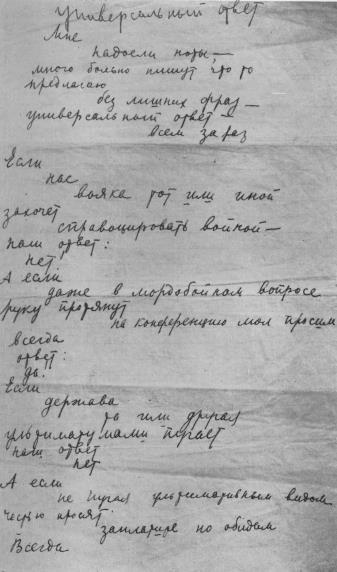 универсальный ответ
Мне
надоели ноты —
много больно пишут что то
предлагаю
без лишних фраз —
универсальный ответ —
всем зараз
Если
нас
вояка тот или иной
захочет
спровоцировать войной —
наш ответ:
нет!
А если
даже в мордобойном вопросе
руку протянут
на конференцию мол просим
всегда
ответ:
да.
Если
держава
та или другая
ультиматумами пугает
наш ответ
нет
А если
не пугая ультимативным видом
честью просят
заплатите по обидам
Всегда